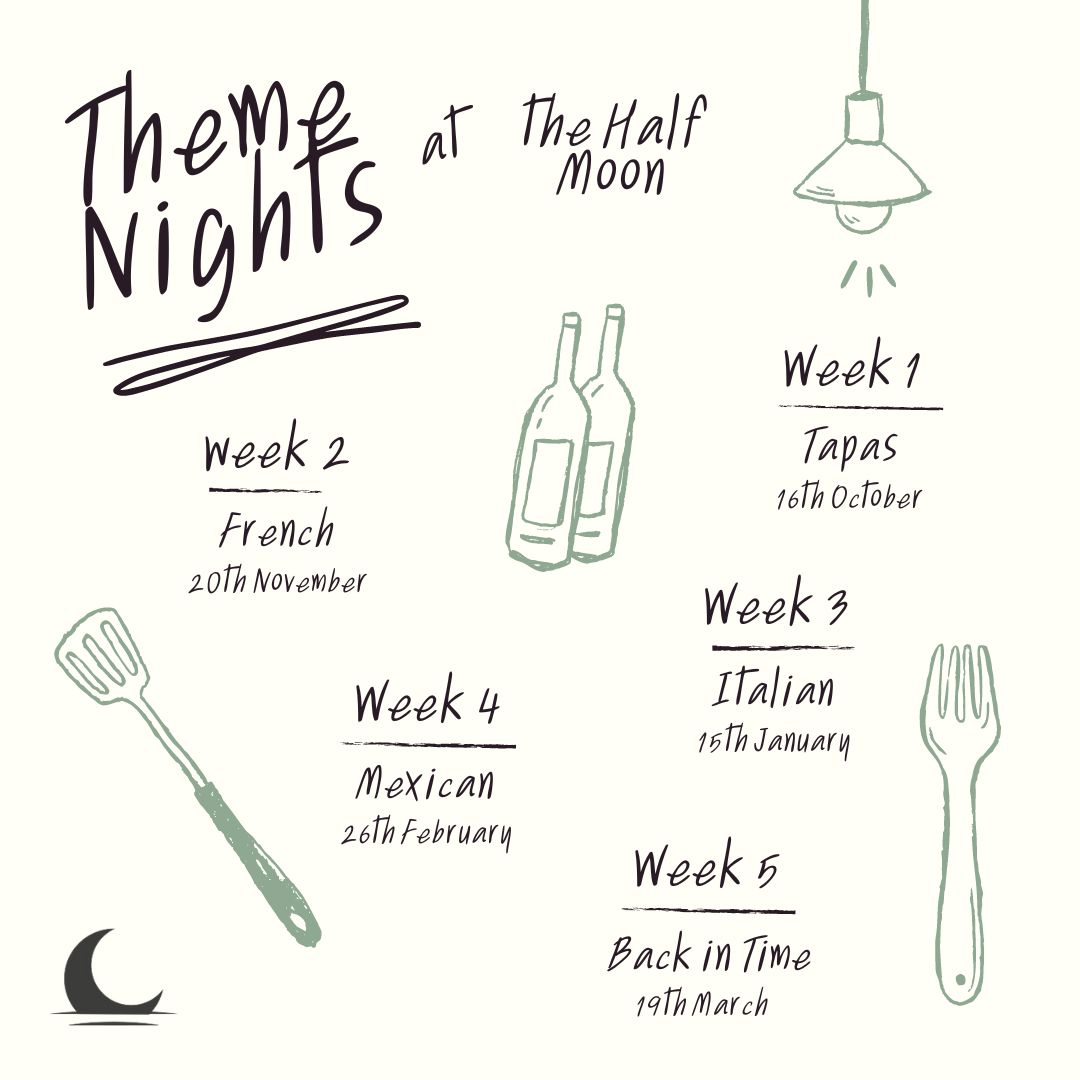 Theme
Nights
at
The Half
Moon
Week 1
Tapas
16th October
Week 2
French
20th November
Week 3
Italian
15th January
Week 4
Mexican
26th February
Week 5
Back in Time
19th March